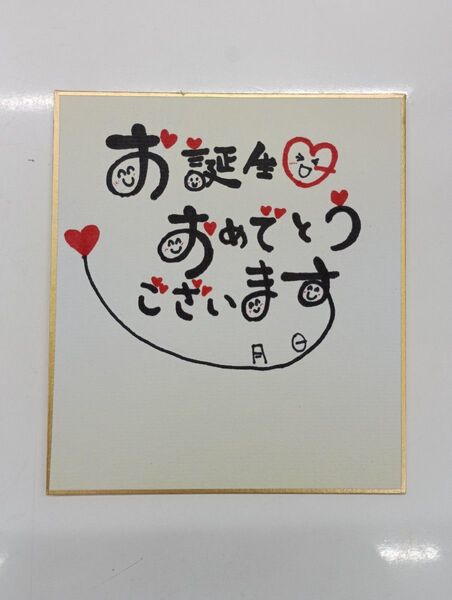 お誕生
おめでとう
ございます
月 日